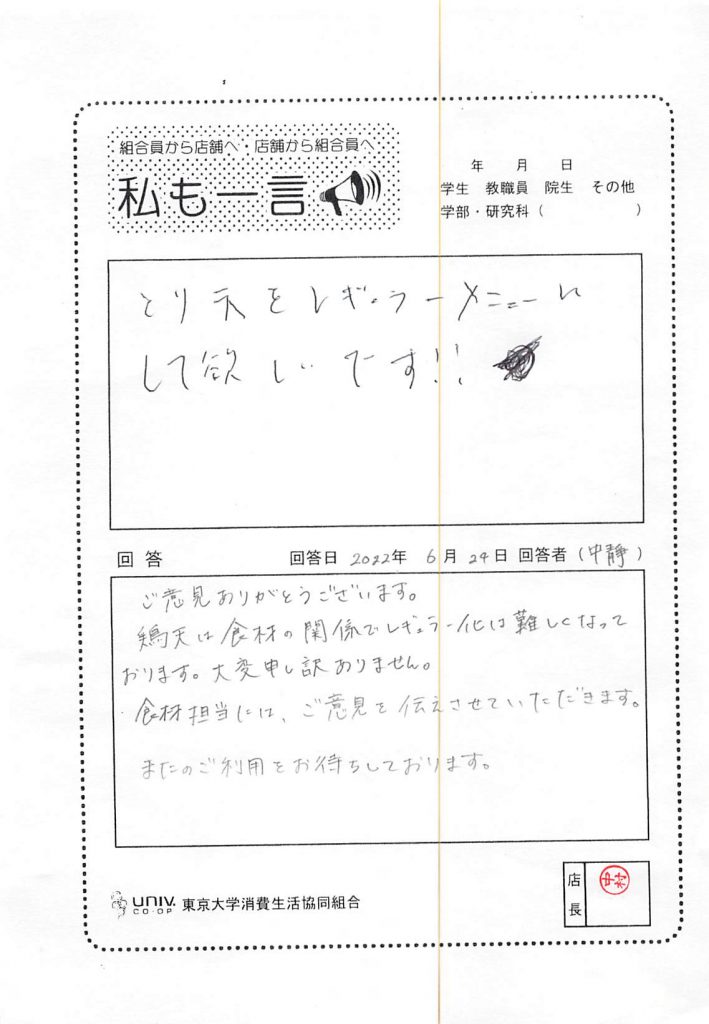 組合員から店舗へ・店舗から組合員へ
私も一言
年 月 日
学生 教職員 院生 その他
学部・研究科( )
とり天をレギュラーメニューに
して欲しいです!!
回答 回答日 2022年 6月24日 回答者(中静)
ご意見ありがとうございます。
鶏天は食材の関係でレギュラー化は難しくなって
おります。大変申し訳ありません。
食材担当には、ご意見を伝えさせていただきます。
またのご利用をお待ちしております。
店長
UNIV. CO-OP 東京大学消費生活協同組合